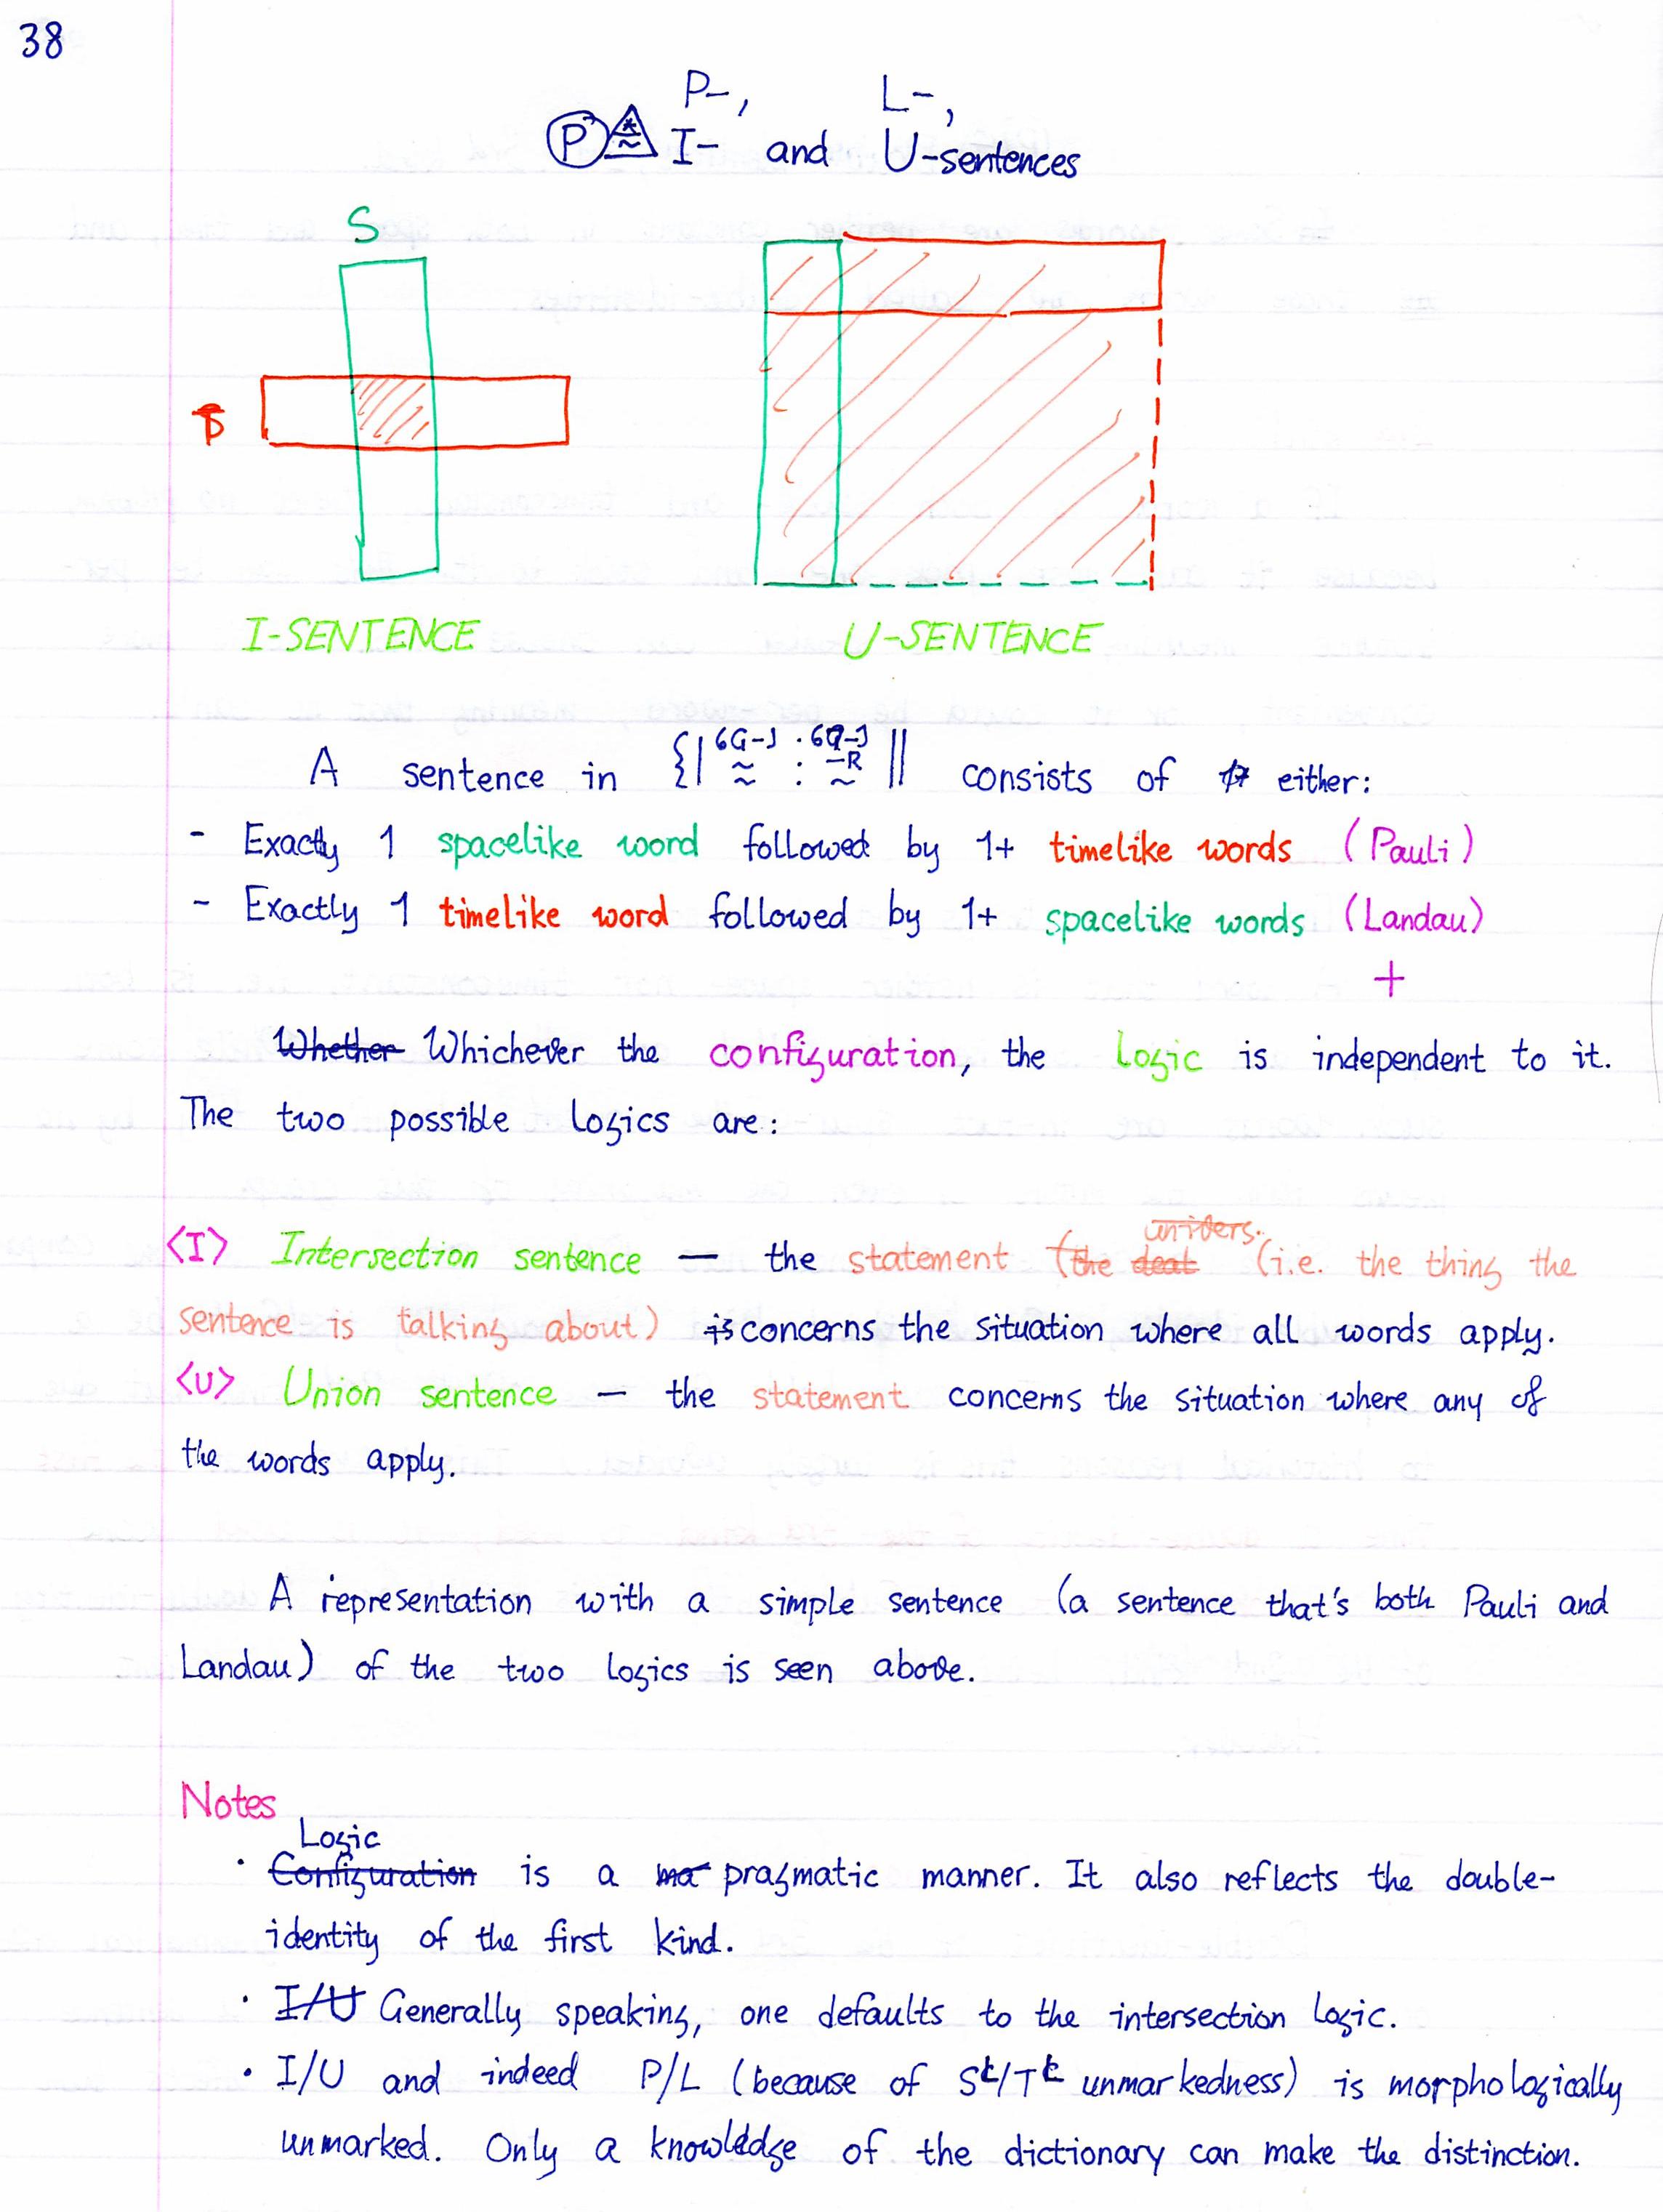 38
P-, L-,
P I- and U-sentences
S
T
I-SENTENCE
U-SENTENCE
A sentence in {| 6G-J : 69-J -R || consists of either:
- Exactly 1 spacelike word followed by 1+ timelike words (Pauli)
- Exactly 1 timelike word followed by 1+ spacelike words (Landau)
+
Whether Whichever the configuration, the logic is independent to it.
The two possible logics are:
univers.
<I> Intersection sentence — the statement (the deat (i.e. the thing the
sentence is talking about) is concerns the situation where all words apply.
<U> Union sentence — the statement concerns the situation where any of
the words apply.
A representation with a simple sentence (a sentence that's both Pauli and
Landau) of the two logics is seen above.
Notes
Logic
· Configuration is a ma pragmatic manner. It also reflects the double-
identity of the first kind.
· I/U Generally speaking, one defaults to the intersection logic.
· I/U and indeed P/L (because of Sᵗ/Tᵗ unmarkedness) is morphologically
unmarked. Only a knowledge of the dictionary can make the distinction.